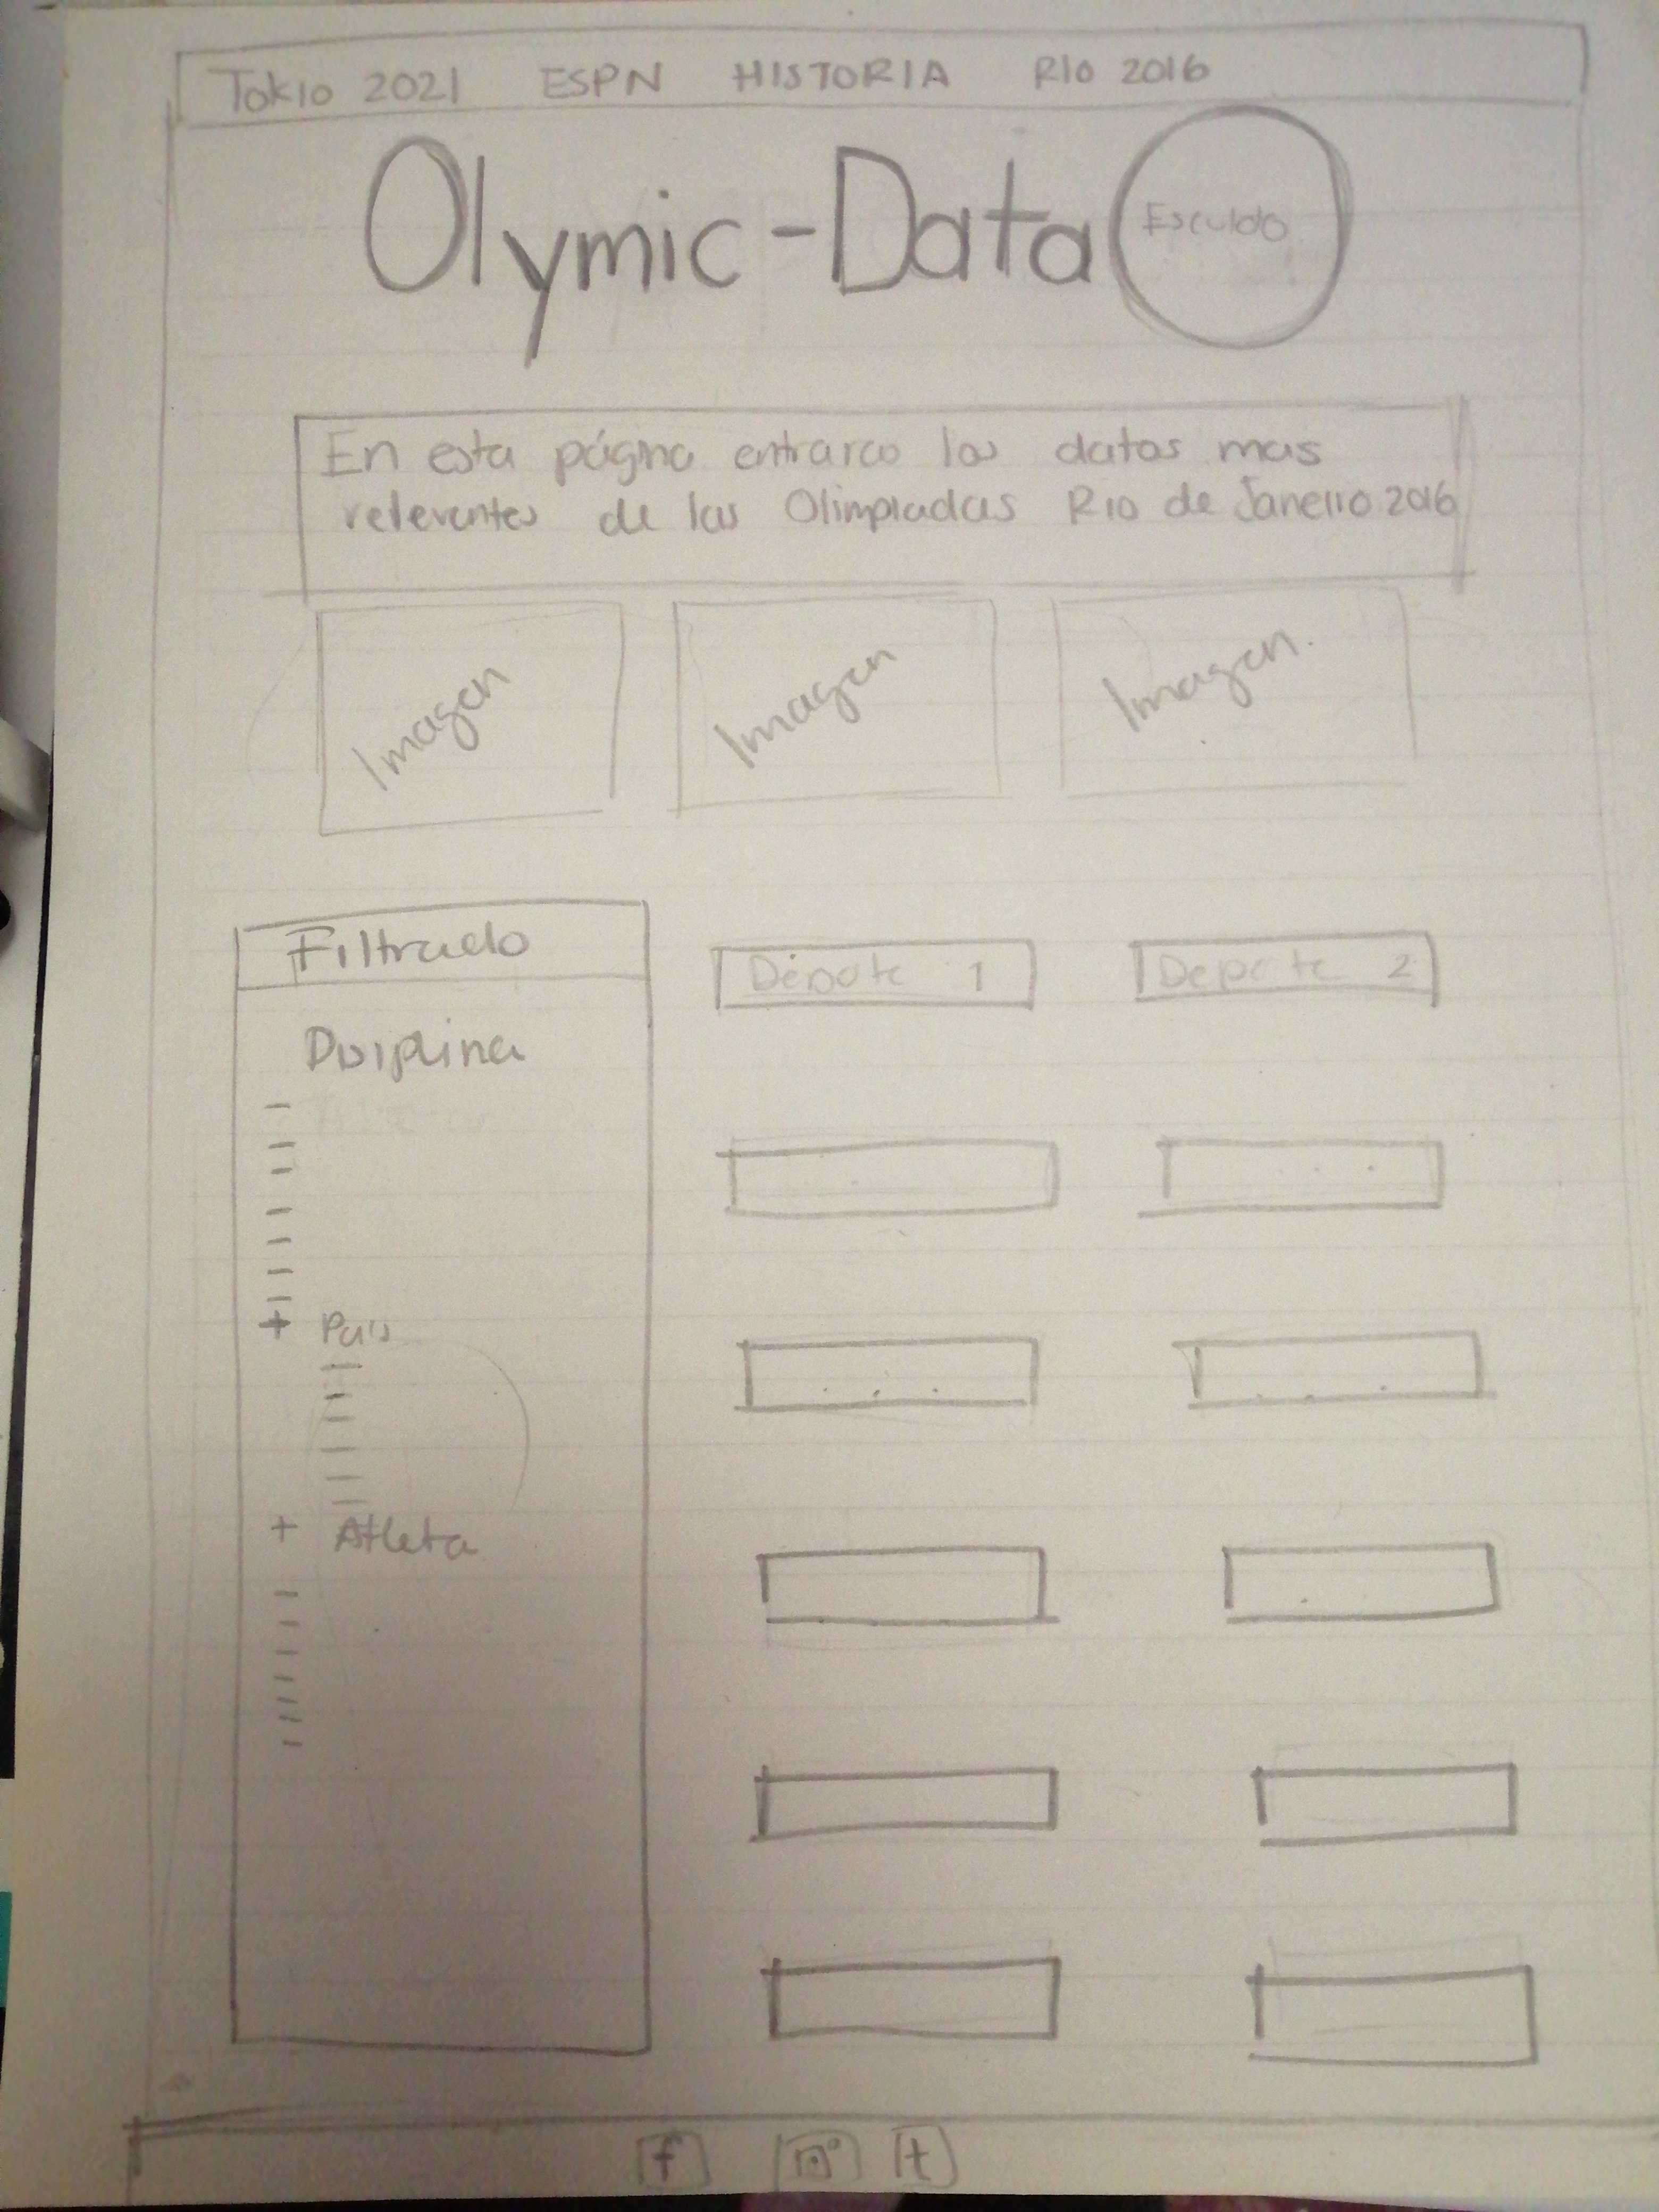 Tokio 2021 ESPN HISTORIA RIO 2016
Olymic-Data
Escudo
En esta página entraras los datos mas
relevantes de las Olimpiadas Rio de Janeiro 2016
Imagen
Imagen
Imagen.
Filtrado
Deporte 1
Deporte 2
Disiplina
+ Pais
+ Atleta
f
t